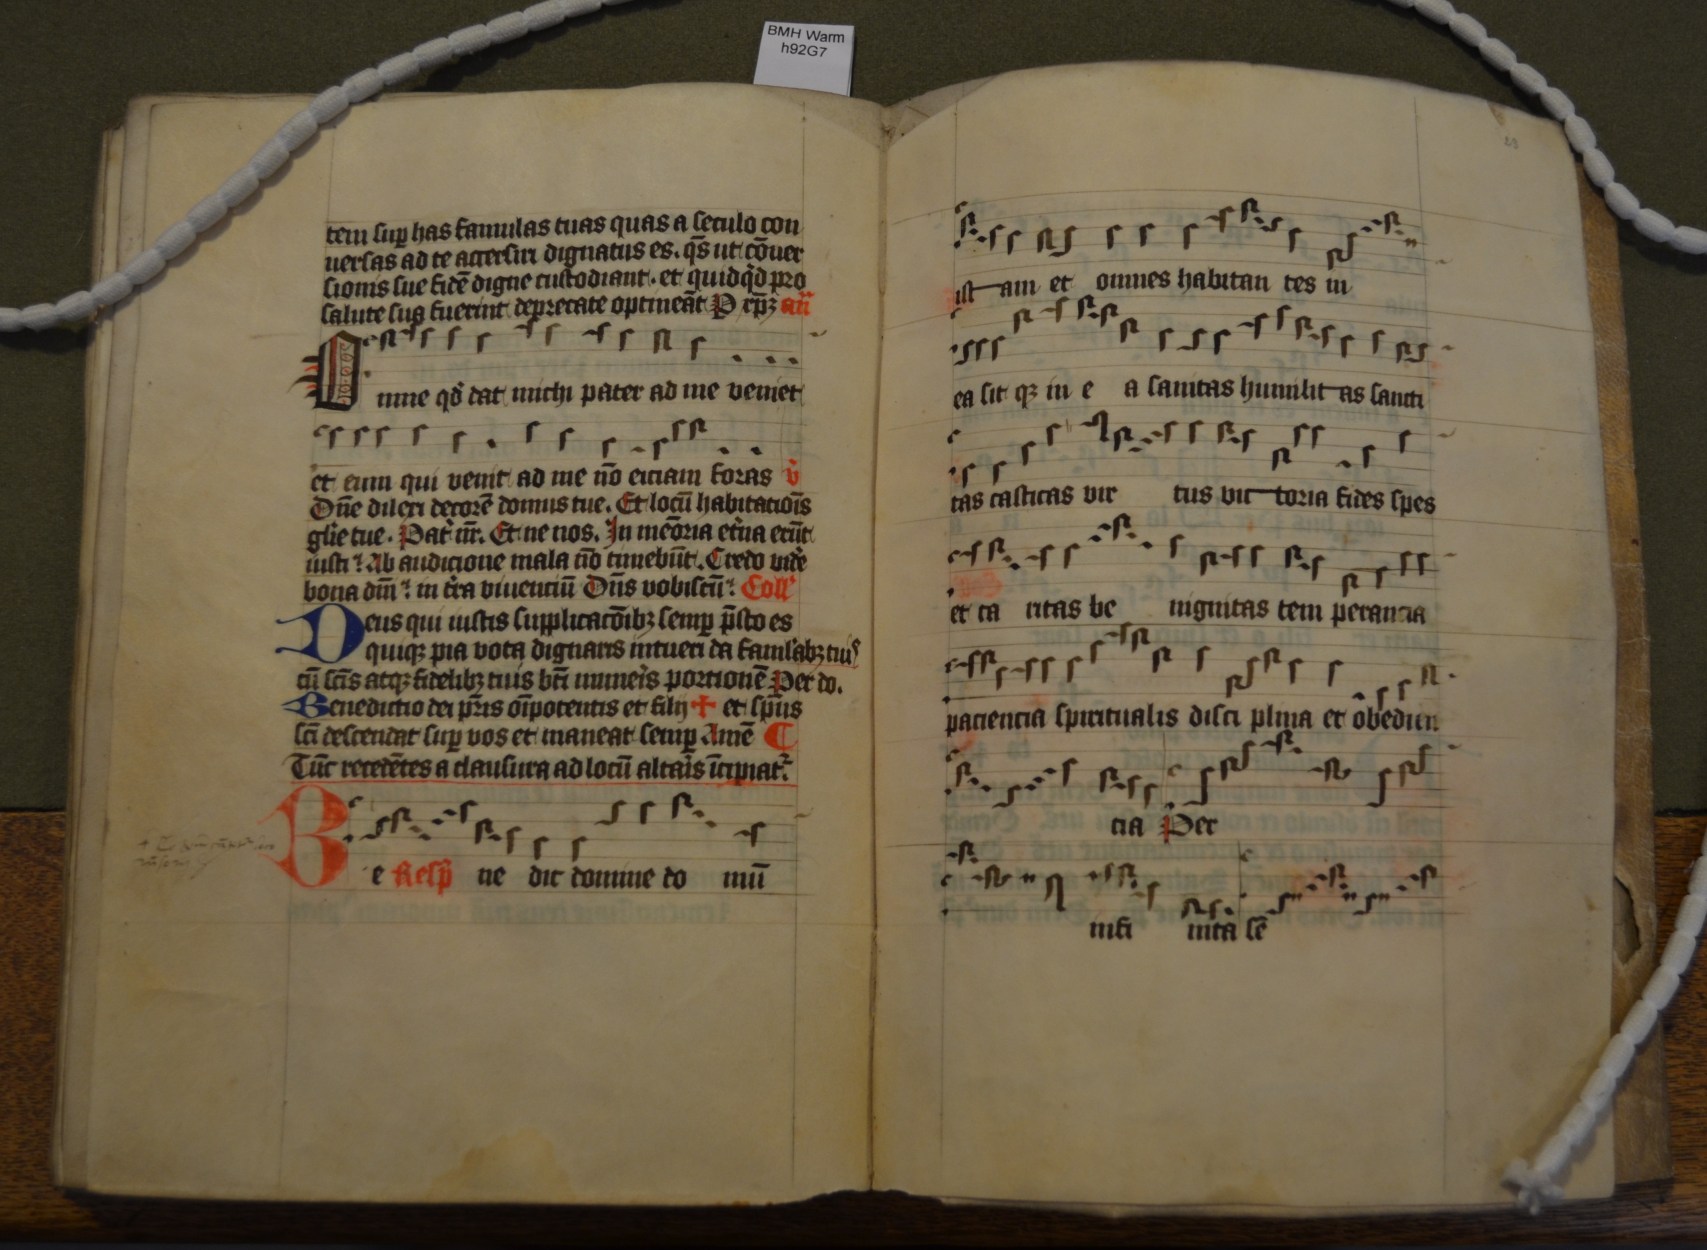 BMH Warm
h92G7
tem sup has famulas tuas quas a seculo con
uersas ad te accersiri dignatus es. q̄s ut cōuer
sionis sue fidē digne custodiant. et quidq̄d pro
salute sua fuerint deprecate optineāt P
Omne qd̓ dat michi pater ad me veniet
et eum qui venit ad me nō eiciam foras v̓
Dn̄e dilexi decorē domus tue. Et locū habitacōis
gl̄ie tue. Pat̓ nr̄. Et ne nos. In memōria et̓na erūt
iusti Ab audicione mala nō timebūt. Credo vide̓
bona dn̄i in t̓ra viuenciū Dn̄s vobiscū Coll̓
Deus qui iustis supplicacōibꝫ semp p̄sto es
quiqꝫ pia vota dignaris intueri da famul̓abꝫ tuis
cū sc̄is atqꝫ fidelibꝫ tuis portionē Per do.
Benedictio dei pr̄is oīpotentis et filij ✝ et sp̄us
sc̄i descendat sup vos et maneat semp Amē
Tūc recedētes a clausura ad locū altaris īcipiat̓
Be Resp̄ ne dic domine do mū
28
ist am et omnes habitan tes in
ea sit qꝫ in e a sanitas humilit as sancti
tas castitas vir tus vic toria fides spes
et ca ritas be nignitas tem perancia
paciencia spiritualis disci plina et obedien
cia Per
infi nita sē